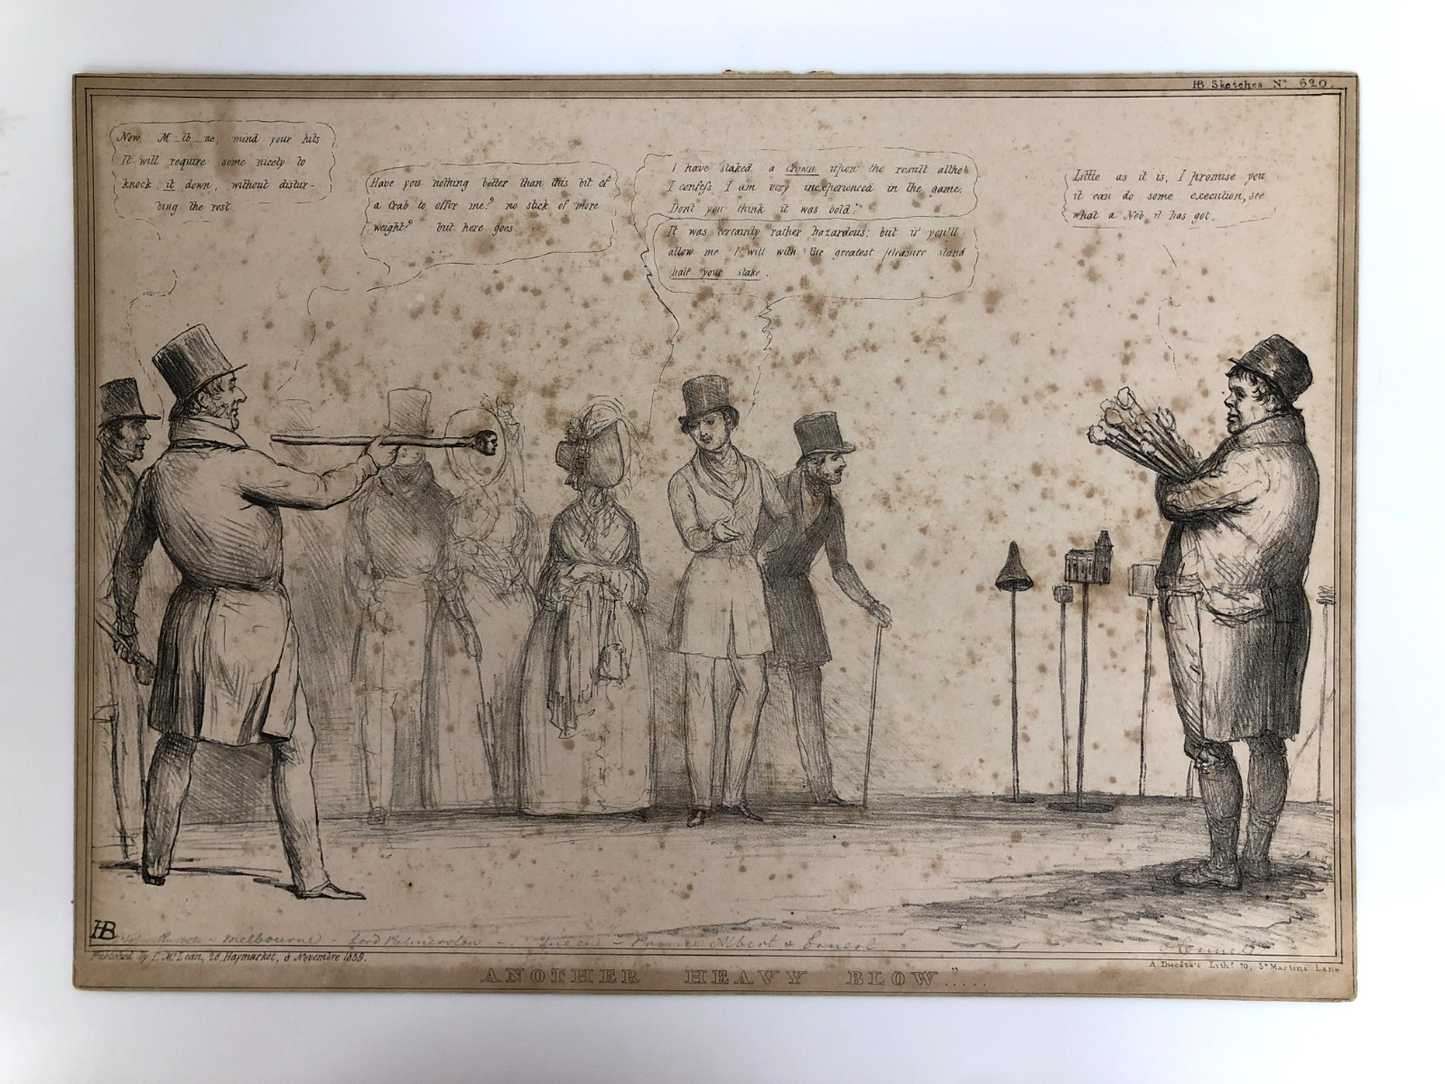 HB Sketches No. 620.
Now M_lb_ne, mind your hits
It will require some nicety to
knock it down, without distur-
bing the rest
Have you nothing better than this bit of
a Crab to offer me? no stick of more
weight? but here goes.
I have staked a Crown upon the result altho'
I confess I am very inexperienced in the game.
Don't you think it was bold?
It was certainly rather hazardous; but if you'll
allow me I will with the greatest pleasure stand
half your stake.
Little as it is, I promise you
it can do some execution, see
what a Nob it has got.
HB
Russell - Melbourne Lord Palmerston - Queen - Prince Albert &
Published by T. McLean, 26 Haymarket, 8 Novembre 1839.
A. Ducôte's Lithy. 70, St Martins Lane
ANOTHER HEAVY BLOW".....